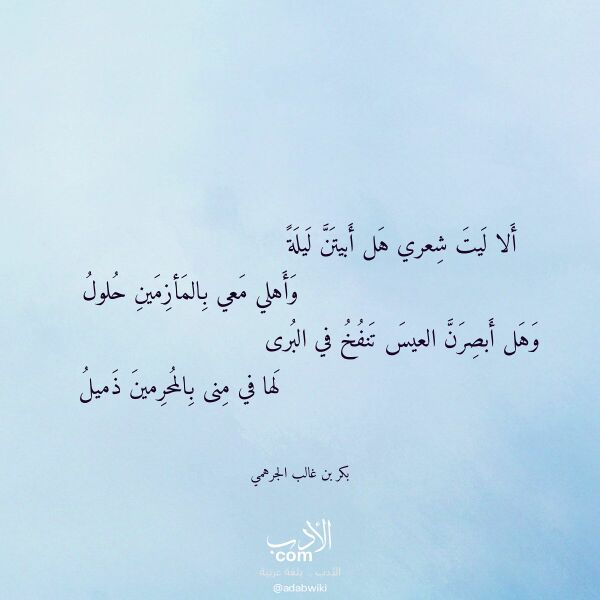 أَلا لَيتَ شِعري هَل أَبيتَنَّ لَيلَةً
وَأَهلي مَعي بِالمَأزِمَينِ حُلولُ
وَهَل أَبصِرَنَّ العيسَ تَنفُخُ في البُرى
لَها في مِنى بِالمُحرِمينَ ذَميلُ
بكر بن غالب الجرهمي
الأدب
com
الأدب .. بلغة عربية
@adabwiki